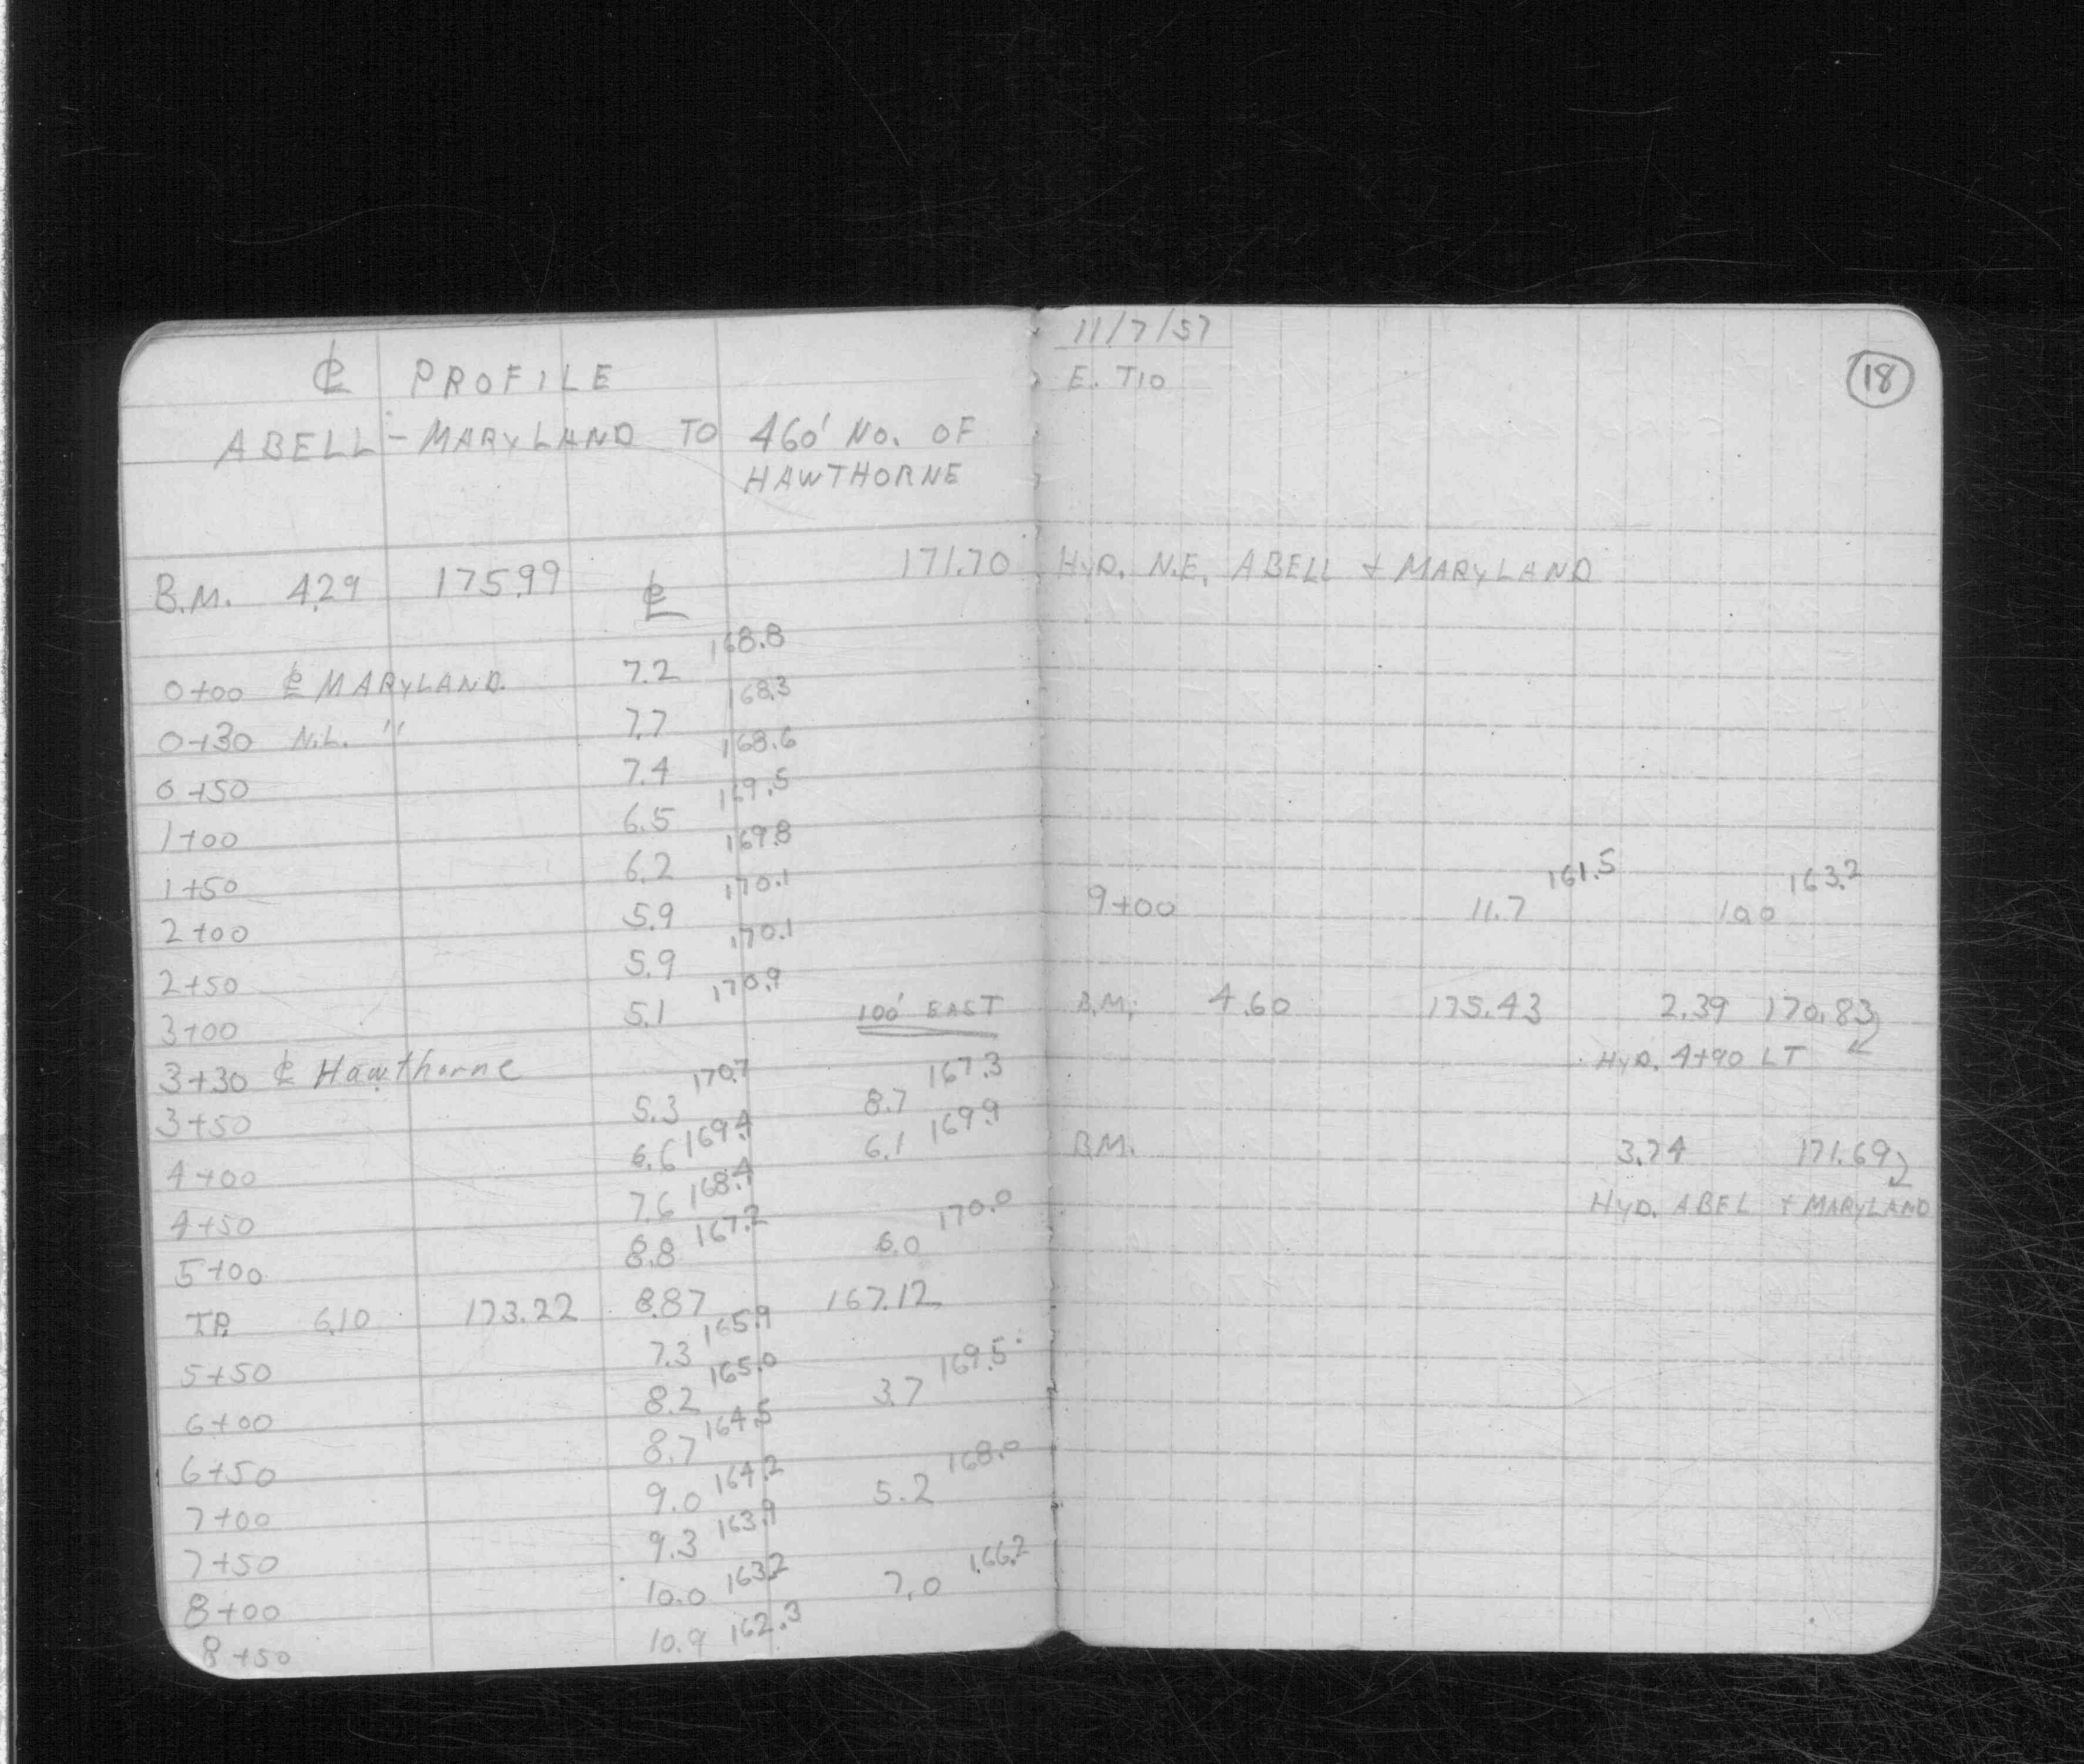 ℄ PROFILE
ABELL - MARYLAND TO 460' NO. OF
HAWTHORNE
B.M. 4.29 175.99 ℄ 171.70
0+00 ℄ MARYLAND. 7.2 168.8
0+30 N.L. " 7.7 168.3
0+50 7.4 168.6
1+00 6.5 169.5
1+50 6.2 169.8
2+00 5.9 170.1
2+50 5.9 170.1
3+00 5.1 170.9 100' EAST
3+30 ℄ Hawthorne
3+50 5.3 170.7 8.7 167.3
4+00 6.6 169.4 6.1 169.9
4+50 7.6 168.4
5+00 8.8 167.2 6.0 170.0
T.P. 6.10 173.22 8.87 167.12
5+50 7.3 165.9
6+00 8.2 165.0 3.7 169.5
6+50 8.7 164.5
7+00 9.0 164.2 5.2 168.0
7+50 9.3 163.9
8+00 10.0 163.2 7.0 166.2
8+50 10.9 162.3
11/7/57
E. TIO
18
HYD. N.E. ABELL + MARYLAND
9+00 11.7 161.5 10.0 163.2
B.M. 4.60 175.43 2.39 170.83
HYD. 4+90 LT
B.M. 3.74 171.69
HYD. ABEL + MARYLAND